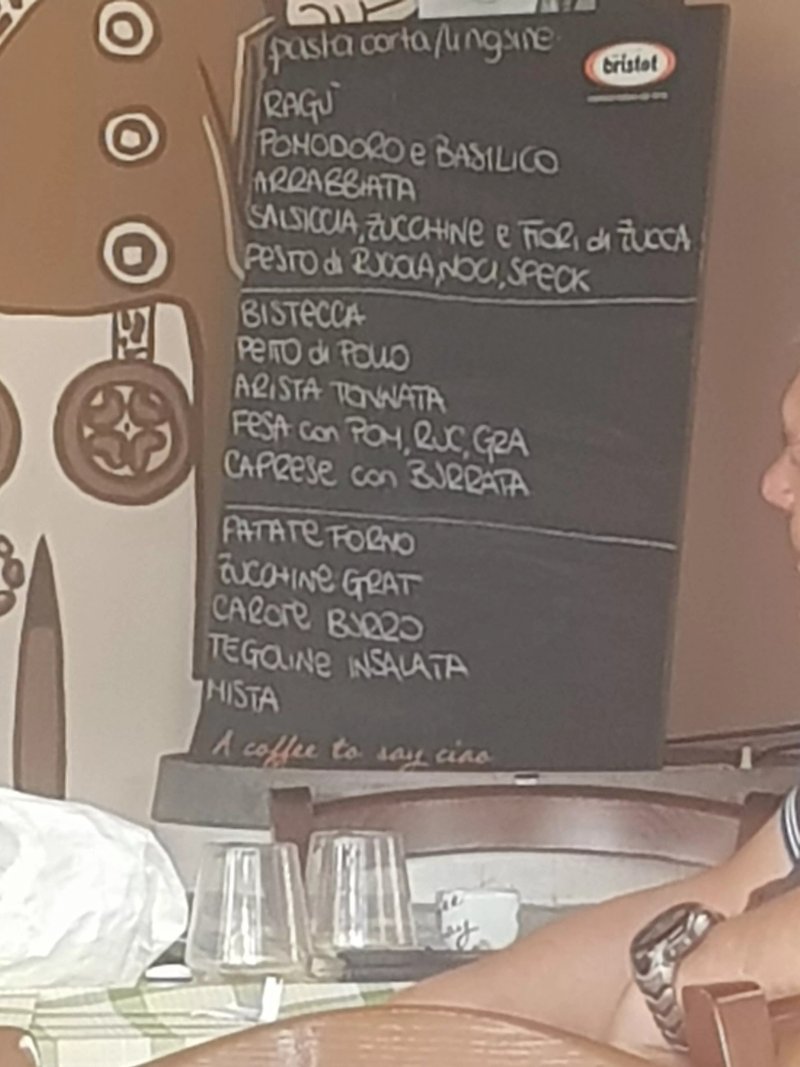 pasta corta/linguine
bristot
RAGÙ
POMODORO e BASILICO
ARRABBIATA
SALSICCIA, ZUCCHINE e FIORI di ZUCCA
PESTO di RUCOLA, NOCI, SPECK
BISTECCA
PETTO di POLLO
ARISTA TONNATA
FESA con POM, RUC, GRA
CAPRESE con BURRATA
PATATE FORNO
ZUCCHINE GRAT
CAROTE BURRO
TEGOLINE INSALATA
MISTA
A coffee to say ciao